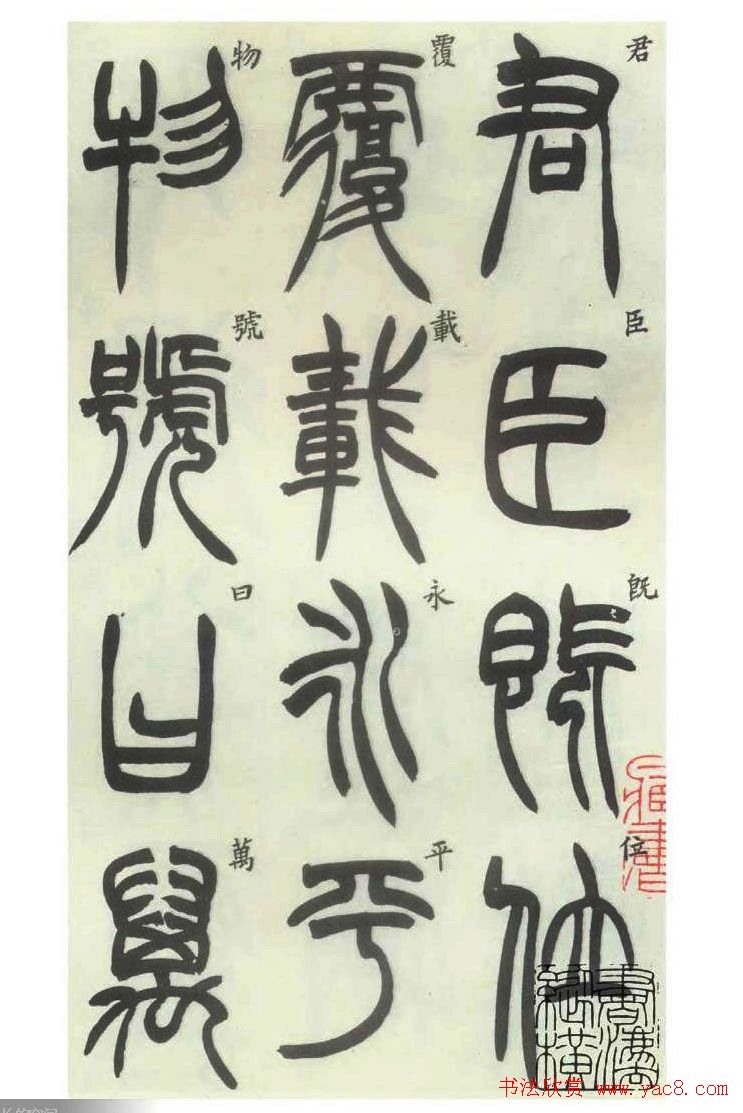 君臣既位
君臣既位
覆載永平
覆載永平
物號曰萬
物號曰萬
書法縱橫
书法欣赏 www.yac8.com